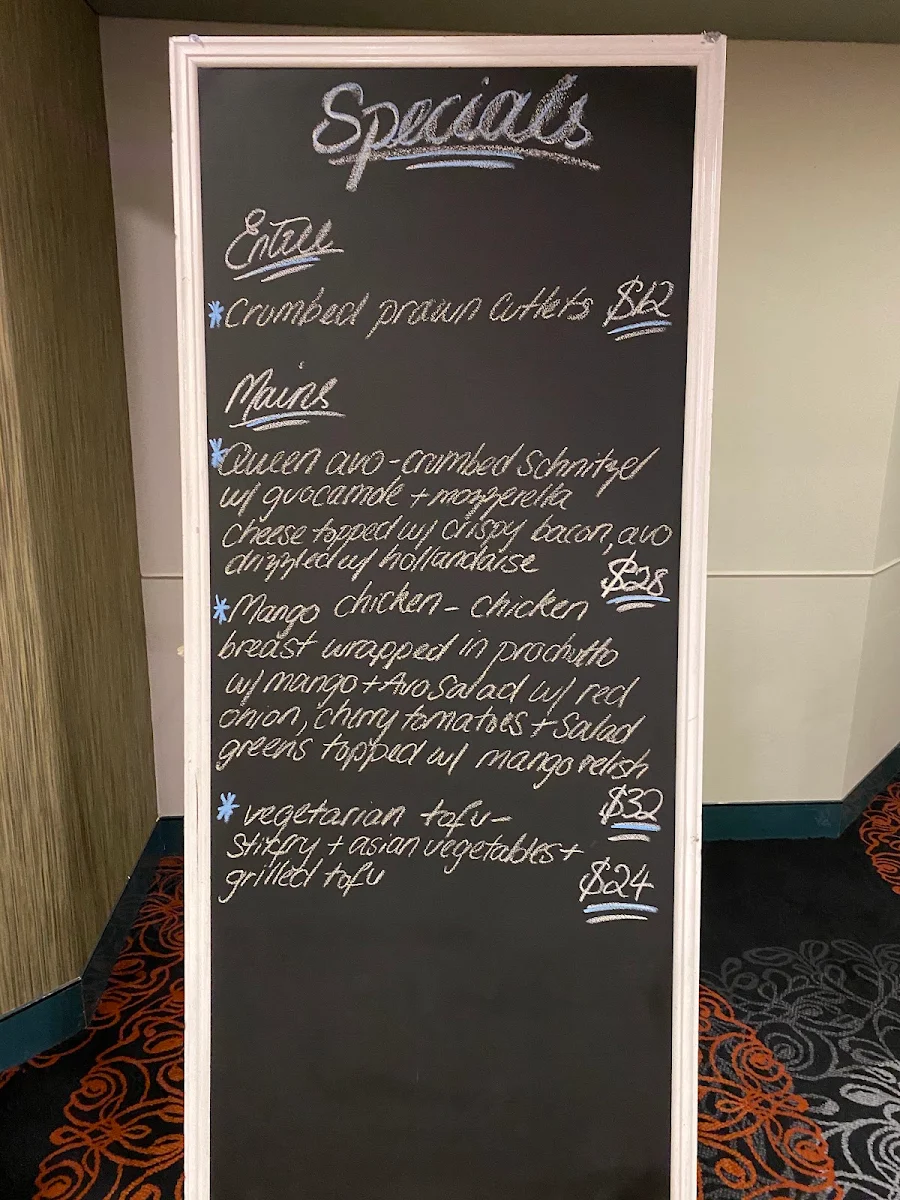 Specials
Entree
*Crumbed prawn cutlets $12
Mains
*Queen avo-crumbed Schnitzel
w/ guacamole + mozzerella
cheese topped w/ crispy bacon, avo
drizzled w/ hollandaise
$28
*Mango chicken - chicken
breast wrapped in prochutto
w/ mango + Avo Salad w/ red
onion, cherry tomatoes + Salad
greens topped w/ mango relish
$32
*vegetarian tofu-
Stirfry + asian vegetables +
grilled tofu
$24